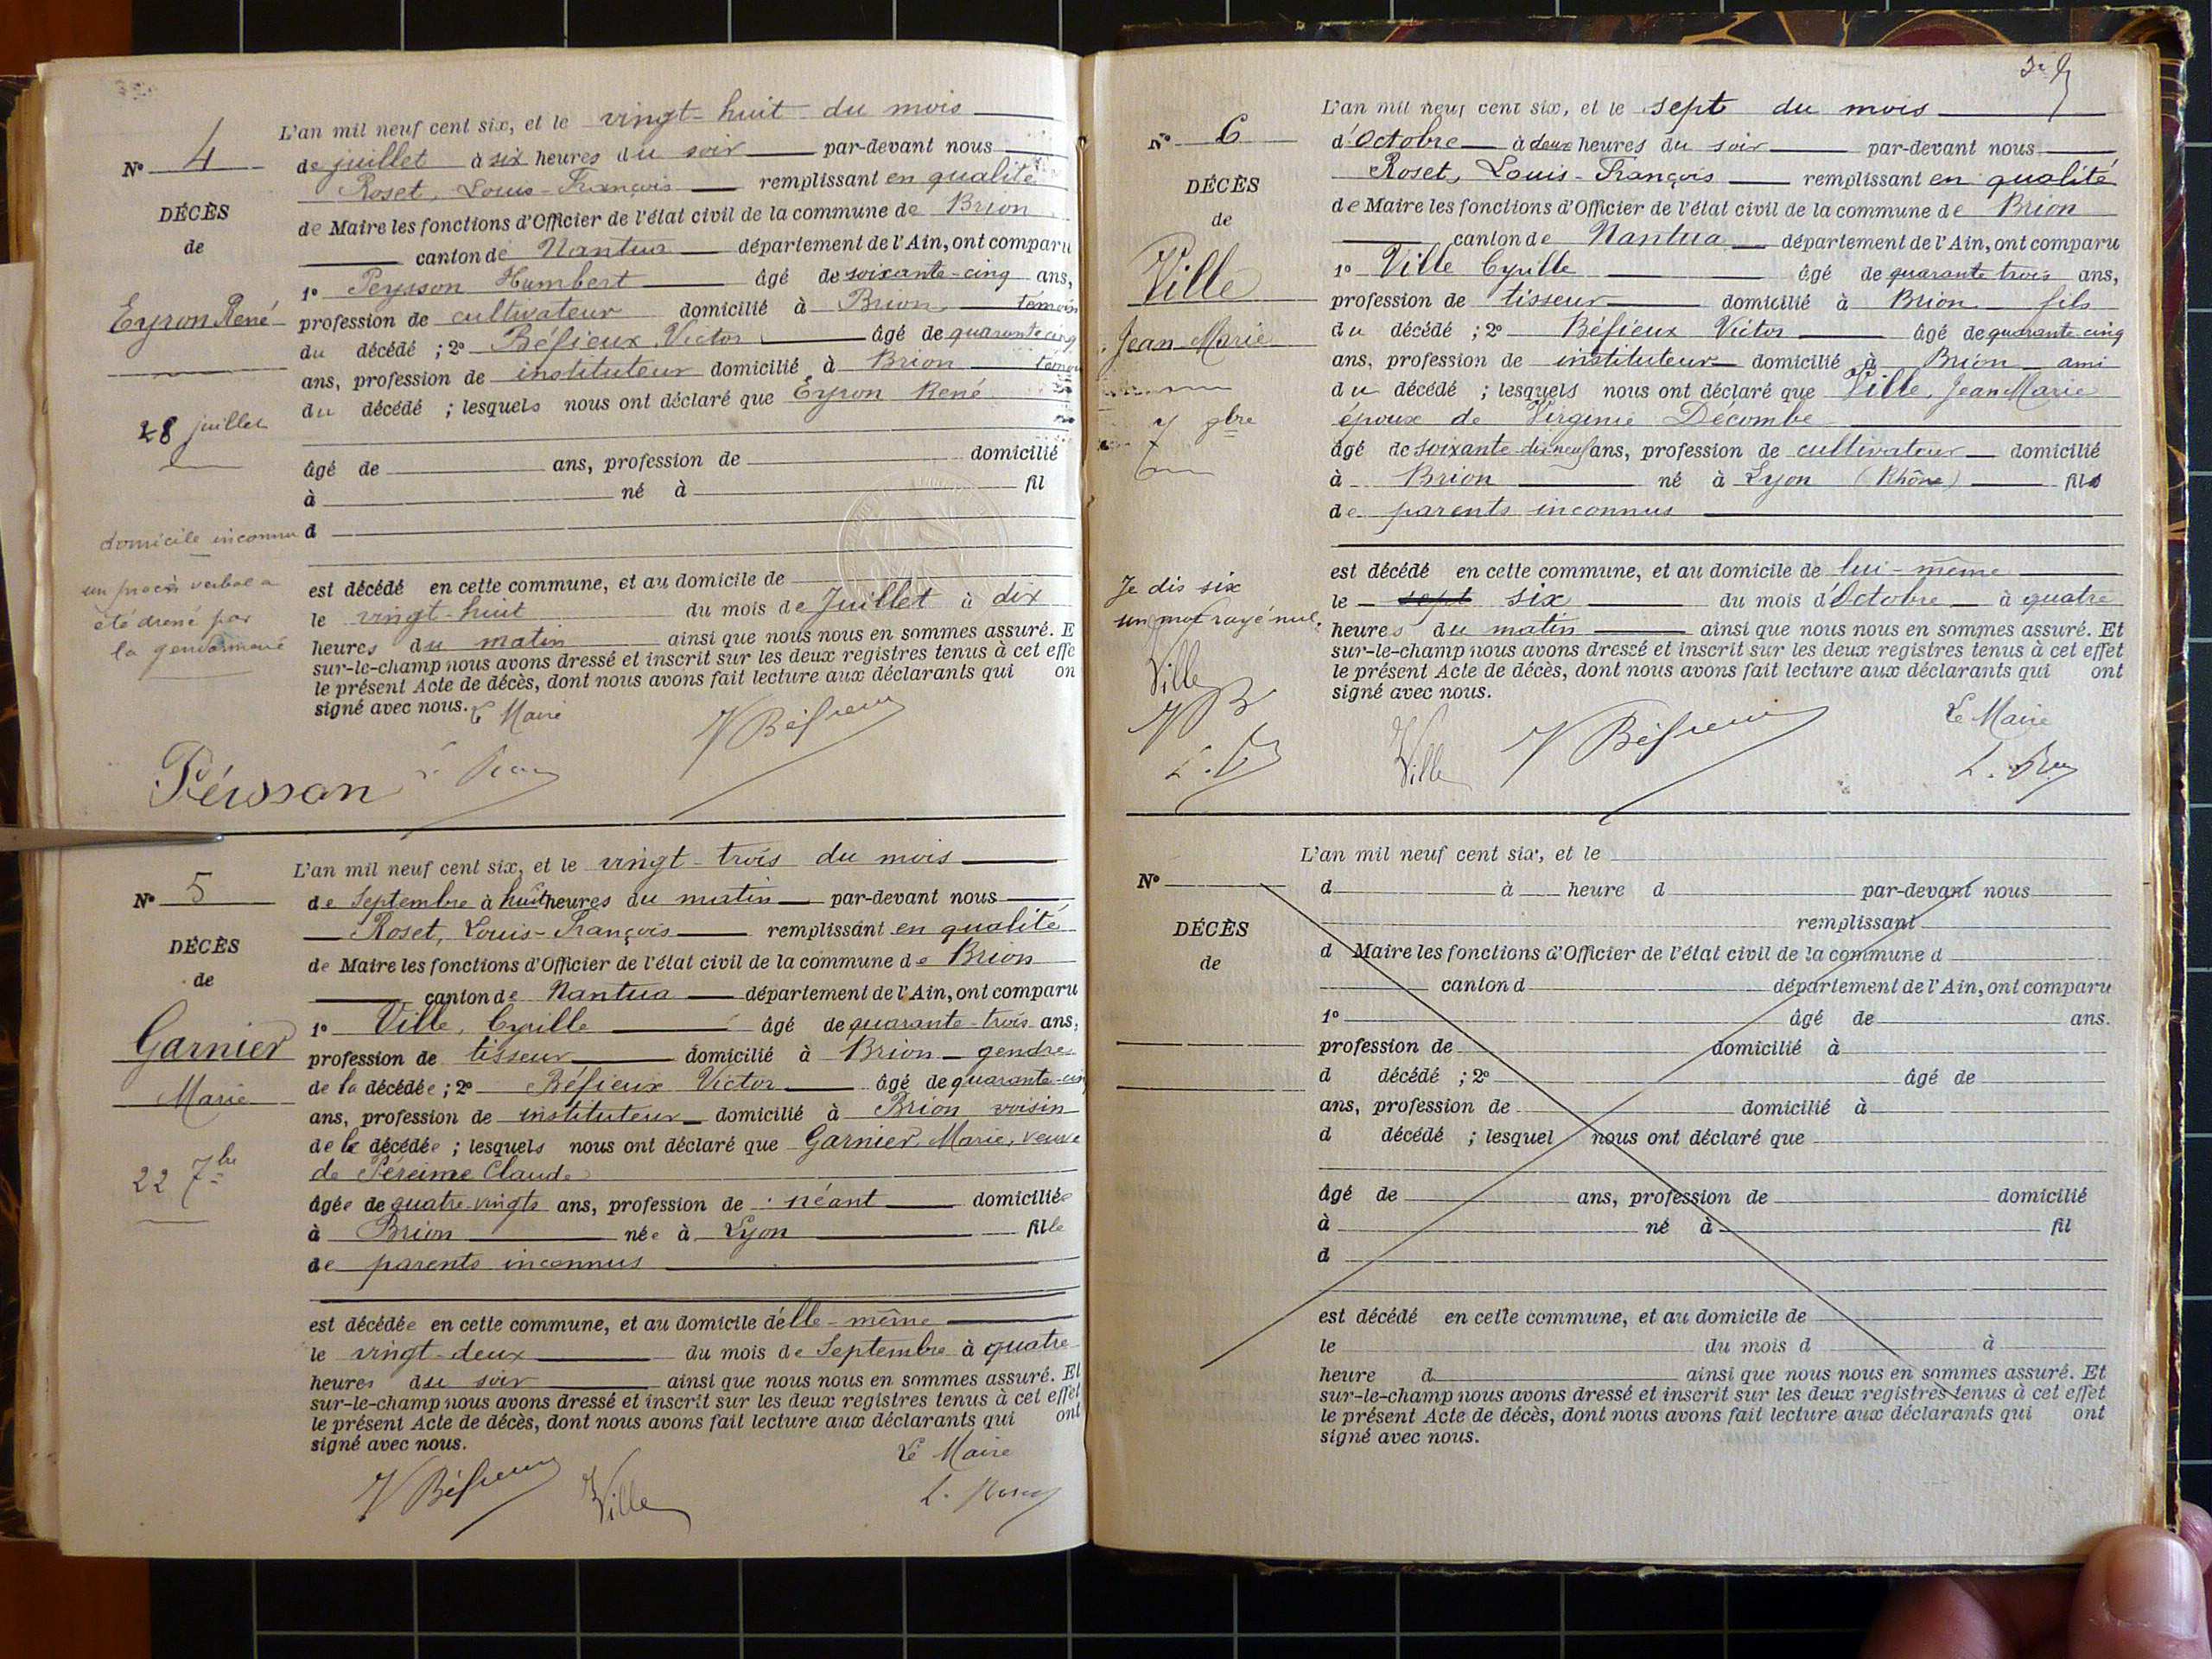 L'an mil neuf cent six, et le vingt-huit du mois
N° 4
de juillet à six heures du soir par-devant nous
Roset, Louis-François remplissant en qualité
DÉCÈS
de Maire les fonctions d'Officier de l'état civil de la commune de Brion
de
canton de Nantua département de l'Ain, ont comparu
1° Peysson Humbert âgé de soixante-cinq ans,
Eyron René
profession de cultivateur domicilié à Brion témoin
du décédé ; 2° Béfieux Victor âgé de quarante cinq
ans, profession de instituteur domicilié à Brion témoin
du décédé ; lesquels nous ont déclaré que Eyron René
28 juillet
âgé de ans, profession de domicilié
à né à fil
domicile inconnu
d
un procès verbal a
été dressé par
la gendarmerie
est décédé en cette commune, et au domicile de
le vingt-huit du mois de Juillet à dix
heures du matin ainsi que nous nous en sommes assuré. E
sur-le-champ nous avons dressé et inscrit sur les deux registres tenus à cet effe
le présent Acte de décès, dont nous avons fait lecture aux déclarants qui on
signé avec nous. Le Maire
V Béfieux
Péisson
L'an mil neuf cent six, et le vingt-trois du mois
N° 5
de Septembre à huit heures du matin par-devant nous
Roset, Louis-François remplissant en qualité
DÉCÈS
de Maire les fonctions d'Officier de l'état civil de la commune de Brion
de
canton de Nantua département de l'Ain, ont comparu
1° Ville, Cyrille âgé de quarante-trois ans,
Garnier
profession de tisseur domicilié à Brion gendre
de la décédée ; 2° Béfieux Victor âgé de quarante-cin
Marie
ans, profession de instituteur domicilié à Brion voisin
de la décédée ; lesquels nous ont déclaré que Garnier Marie, veuve
22 7bre
de Péreime Claude
âgée de quatre-vingts ans, profession de néant domiciliée
à Brion née à Lyon fille
de parents inconnus
est décédée en cette commune, et au domicile d'elle-même
le vingt-deux du mois de Septembre à quatre
heures du soir ainsi que nous nous en sommes assuré. Et
sur-le-champ nous avons dressé et inscrit sur les deux registres tenus à cet effet
le présent Acte de décès, dont nous avons fait lecture aux déclarants qui ont
signé avec nous.
Le Maire
V Béfieux Ville L. Roset
L'an mil neuf cent six, et le sept du mois
N° 6
d'Octobre à deux heures du soir par-devant nous
Roset, Louis-François remplissant en qualité
DÉCÈS
de Maire les fonctions d'Officier de l'état civil de la commune de Brion
de
canton de Nantua département de l'Ain, ont comparu
1° Ville Cyrille âgé de quarante trois ans,
Ville
profession de tisseur domicilié à Brion fils
du décédé ; 2° Béfieux Victor âgé de quarante cinq
Jean Marie
ans, profession de instituteur domicilié à Brion ami
du décédé ; lesquels nous ont déclaré que Ville, Jean Marie
époux de Virginie Decombe
âgé de soixante-dix-neuf ans, profession de cultivateur domicilié
à Brion né à Lyon (Rhône) fils
de parents inconnus
est décédé en cette commune, et au domicile de lui-même
Je dis six
le sept six du mois d'Octobre à quatre
un mot rayé nul.
heures du matin ainsi que nous nous en sommes assuré. Et
sur-le-champ nous avons dressé et inscrit sur les deux registres tenus à cet effet
le présent Acte de décès, dont nous avons fait lecture aux déclarants qui ont
signé avec nous.
Ville
VB
Le Maire
Ville V Béfieux
L'an mil neuf cent six, et le
N°
d à heure d par-devant nous
remplissant
DÉCÈS
d Maire les fonctions d'Officier de l'état civil de la commune d
de
canton d département de l'Ain, ont comparu
1° âgé de ans.
profession de domicilié à
d décédé ; 2° âgé de
ans, profession de domicilié à
d décédé ; lesquel nous ont déclaré que
âgé de ans, profession de domicilié
à né à fil
d
est décédé en cette commune, et au domicile de
le du mois d à
heure d ainsi que nous nous en sommes assuré. Et
sur-le-champ nous avons dressé et inscrit sur les deux registres tenus à cet effet
le présent Acte de décès, dont nous avons fait lecture aux déclarants qui ont
signé avec nous.